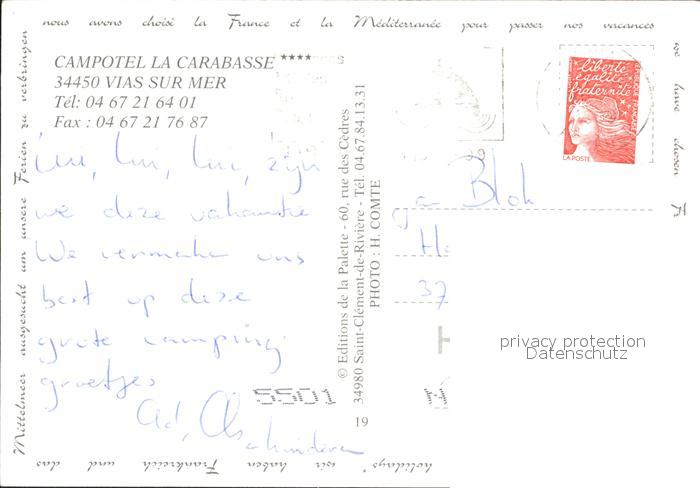 nous avons choisi la France et la Méditerranée pour passer nos vacances
we have chosen F
CAMPOTEL LA CARABASSE ****
34450 VIAS SUR MER
Tél: 04 67 21 64 01
Fax : 04 67 21 76 87
lui, lui, lui, zijn
we deze vakantie
We vermaken ons
best op deze
grote camping
groetjes
Ad,
© Editions de la Palette - 60, rue des Cèdres
34980 Saint-Clément-de-Rivière - Tél. 04.67.84.13.31
PHOTO : H. COMTE
liberté
égalité
fraternité
LA POSTE
Blok
37
privacy protection
Datenschutz
5501
19
holidays" wir haben Frankreich und das
Mittelmeer ausgesucht um unsere Ferien zu verbringen